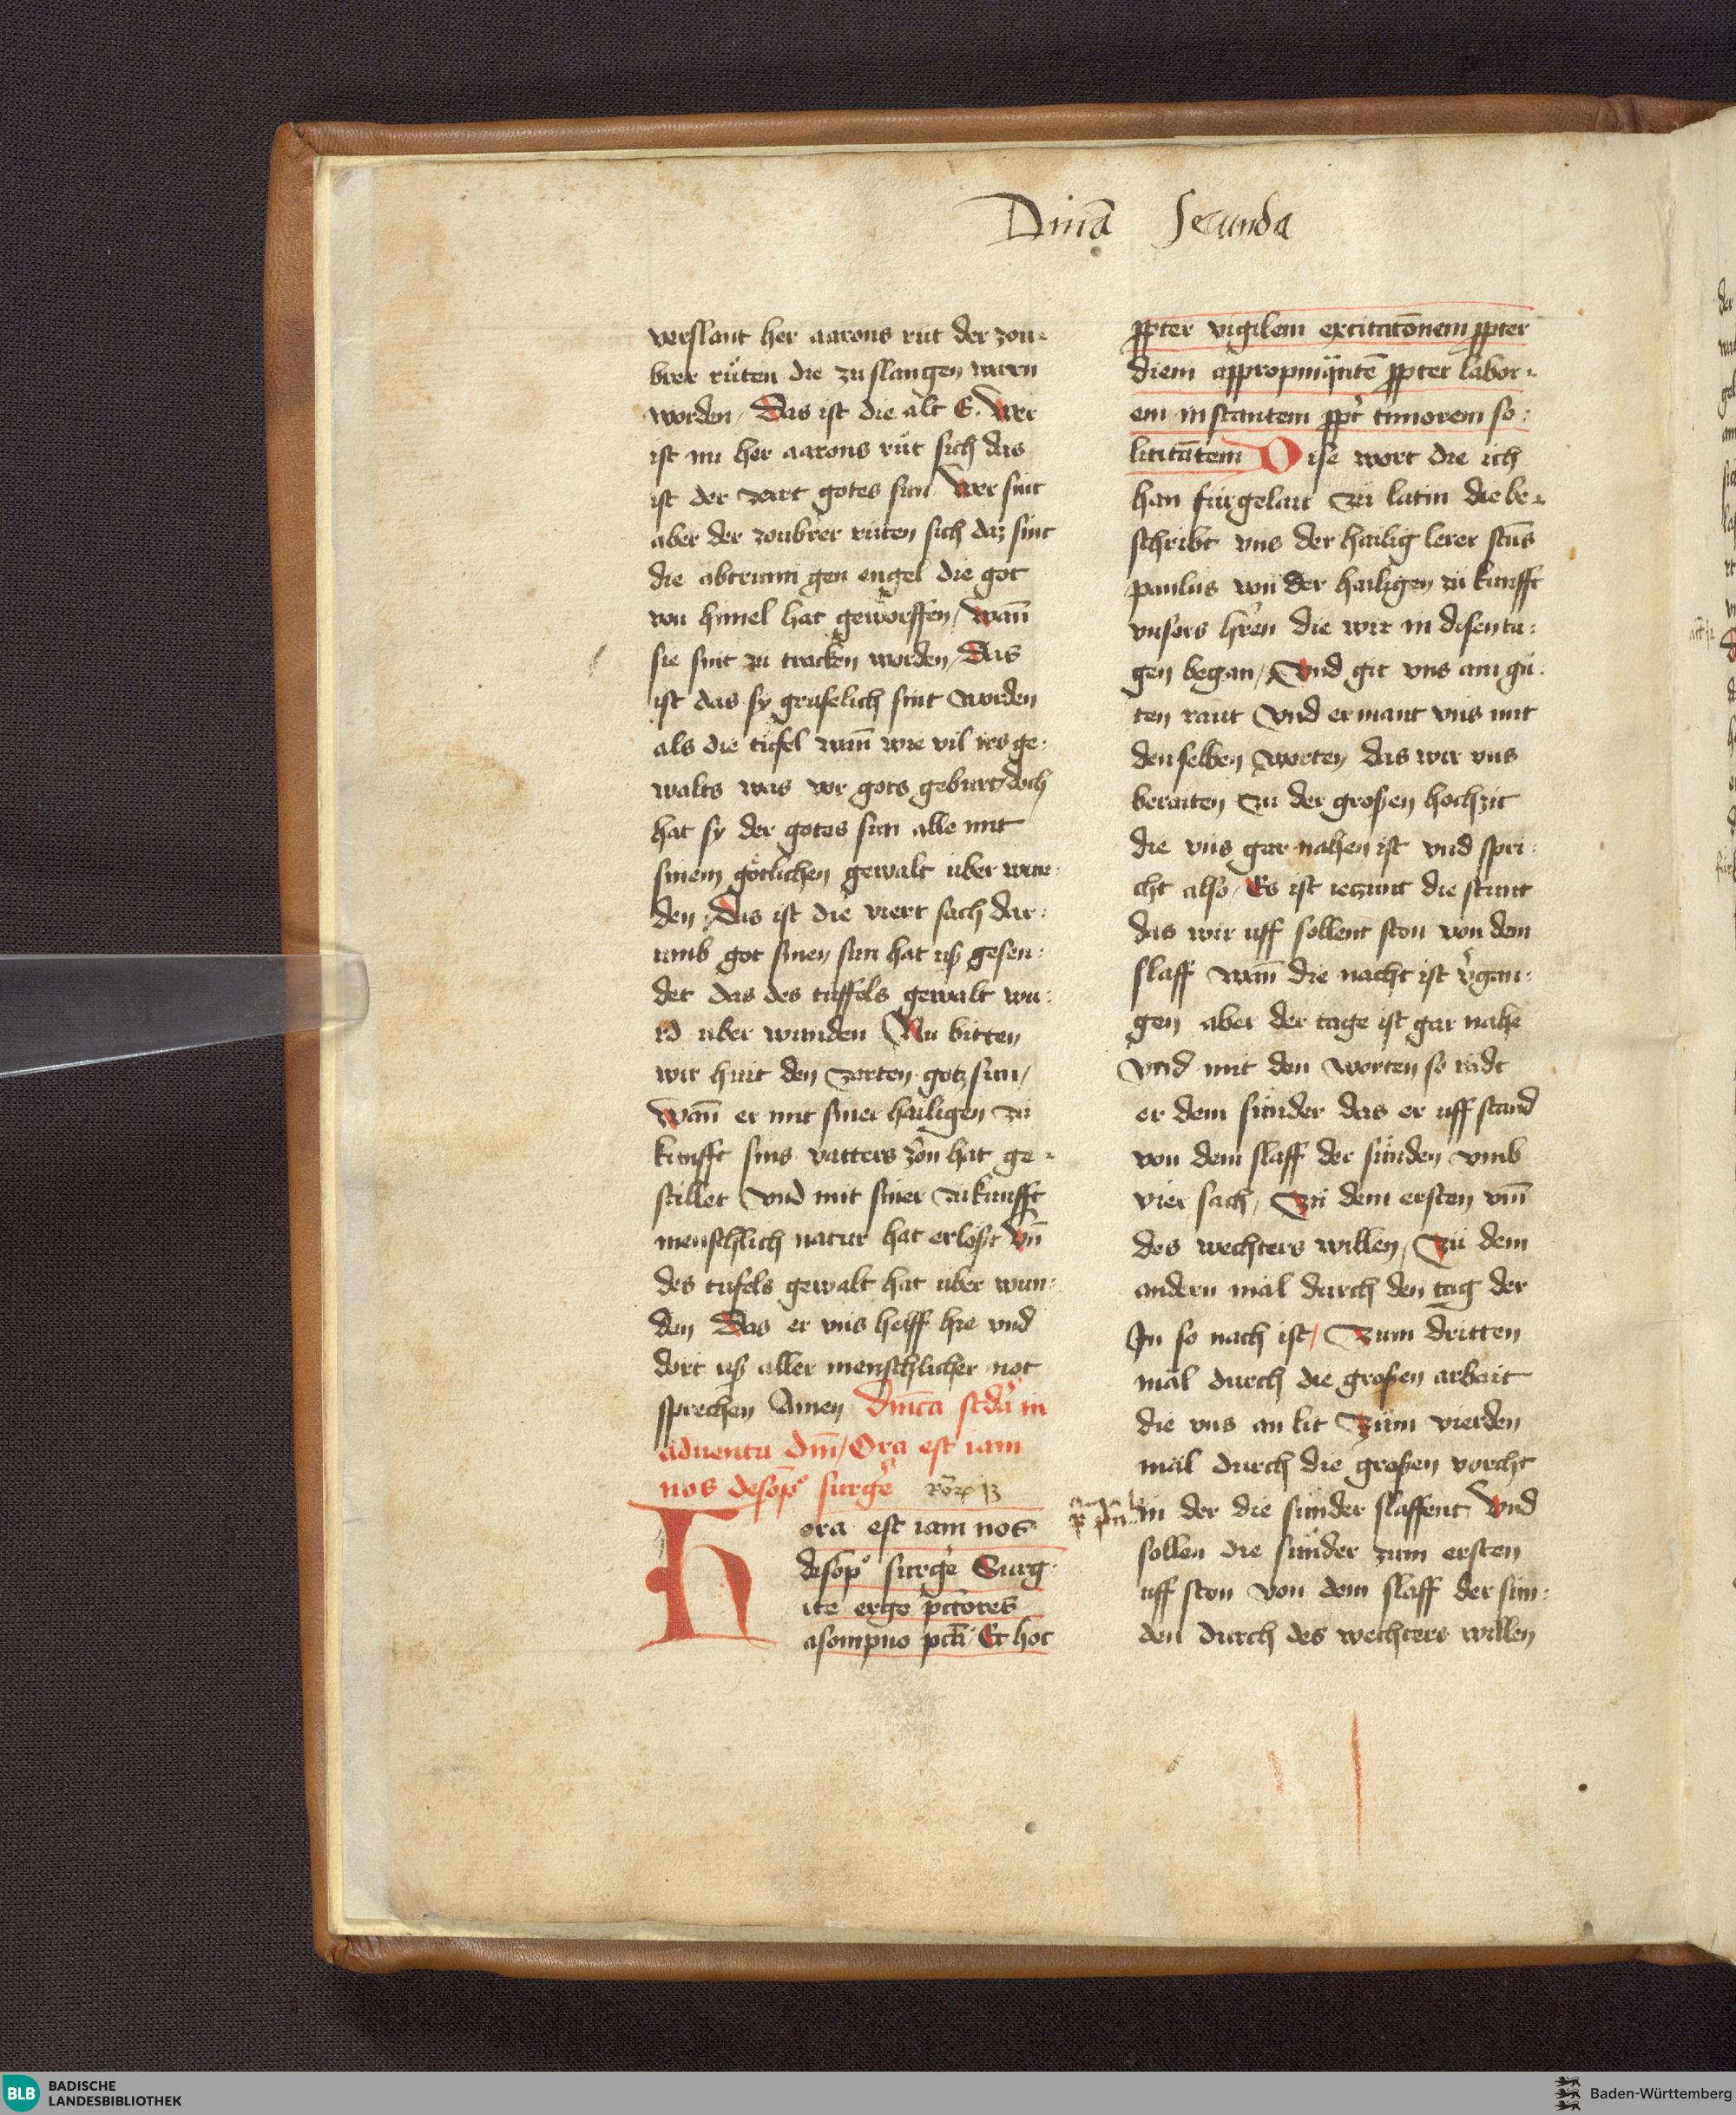 Dmcā Secunda
verslant her aarons rut der zou-
brer růten die zu slangen warn
worden / Das ist die alt E. Wer
ist nu her aarons růt sich das
ist der zart gotes sun Wer sint
aber der zoubrer růten sich daz sint
die abtrunn gen engel die got
von himel hat geworffen / Wañ
sie sint zu tracken worden / Das
ist das sy gruselich sint worden
als die tüfel wañ wie vil irs ge:
walts was vor gots geburt / doch
hat sy der gotes sun alle mit
sinem götlichen gewalt über wun
den / Das ist die viert sach dar:
umb got sinen sun hat uß gesen:
det das des tüffels gewalt wu:
rd uber wunden Nu bitten
wir hüt den zarten gotz sun /
Wañ er mit siner hailigen zů
kunfft sins vatters zorn hat ge-
stillet Vnd mit siner zůkunfft
menschlich natur hat erlößt Vñ
des tüfels gewalt hat über wun:
den Das er vns helff hie vnd
dort uß aller menschlicher not
sprechen Amen Dmīca scdā in
aduentu dm̄ / Ora est iam
nos desōp̄ surge᷑ Ro᷑ 13
Hora est iam nos
desop̄ surge᷑ Surg-
ite ergo pc̄tores
asompno pcti Et hoc
ꝓpter vigilem excitatōnem ꝓpter
diem appropinq̈ntē ꝓpter labor-
em instantem ꝓpt᷑ timorem so:
licitātem Dise wort die ich
han fürgelait zů latin die be-
schribt vns der hailig lerer sc̄us
paulus von der hailigen zů kunfft
vnsers hr̄en die wir in disen ta:
gen began / Vnd git vns ain gů:
ten raut Vnd ermant vns mit
den selben worten das wir vns
beraiten zu der großen hochzit
die vns gar nahen ist vnd spri:
cht also / Es ist ieczunt die stunt
das wir uff sollent ston von dem
slaff wañ die nacht ist v᷑gan:
gen aber der tage ist gar nahe
Vnd mit den worten so rädt
er dem sünder das er uff stand
von dem slaff der sünden vmb
vier sach / Zů dem ersten vm̄
des wechters willen / Zů dem
andern mäl durch den tag der
In so nach ist / Zum dritten
mäl durch die großen arbait
die vns an lit Zům vierden
mäl durch die großen vorcht
in der die sünder slaffent Vnd
sollen die sünder zum ersten
uff ston von dem slaff der sün:
den durch des wechters willen
BLB BADISCHE
LANDESBIBLIOTHEK
Baden-Württemberg